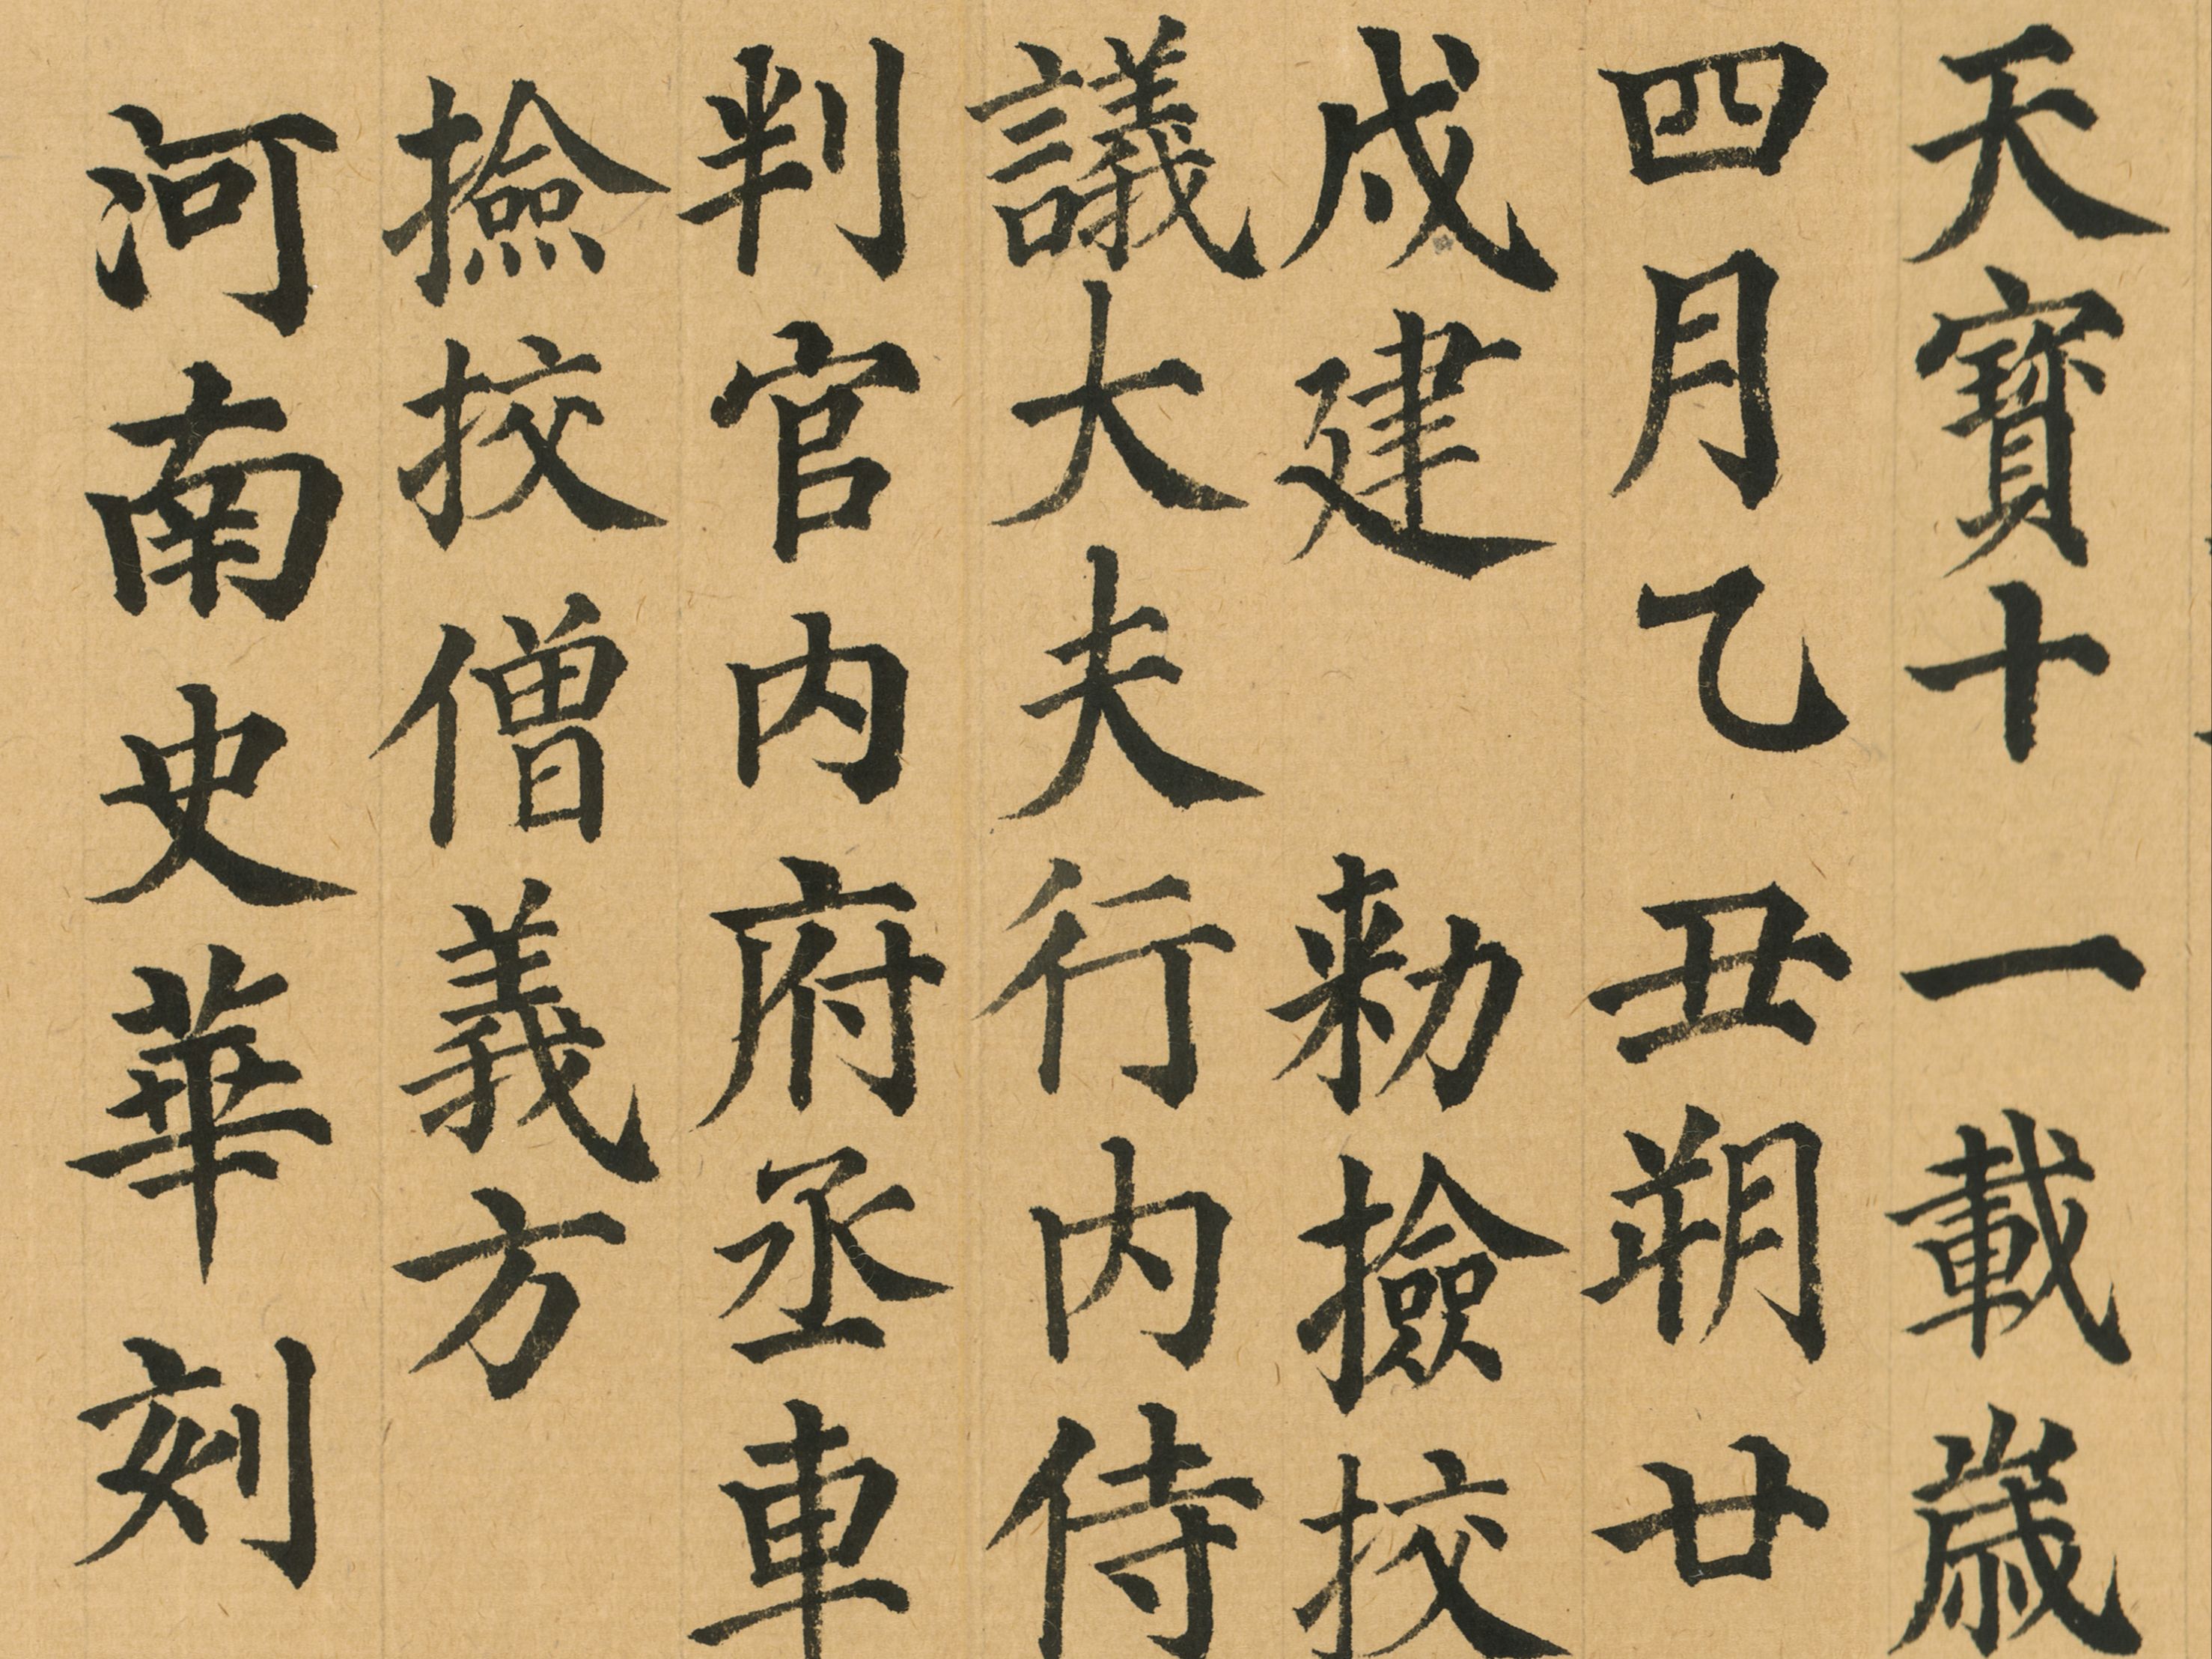 天寶十一載歲
四月乙丑朔廿
戍建勑撿挍
議大夫行内侍
判官内府丞車
撿挍僧義方
河南史華刻